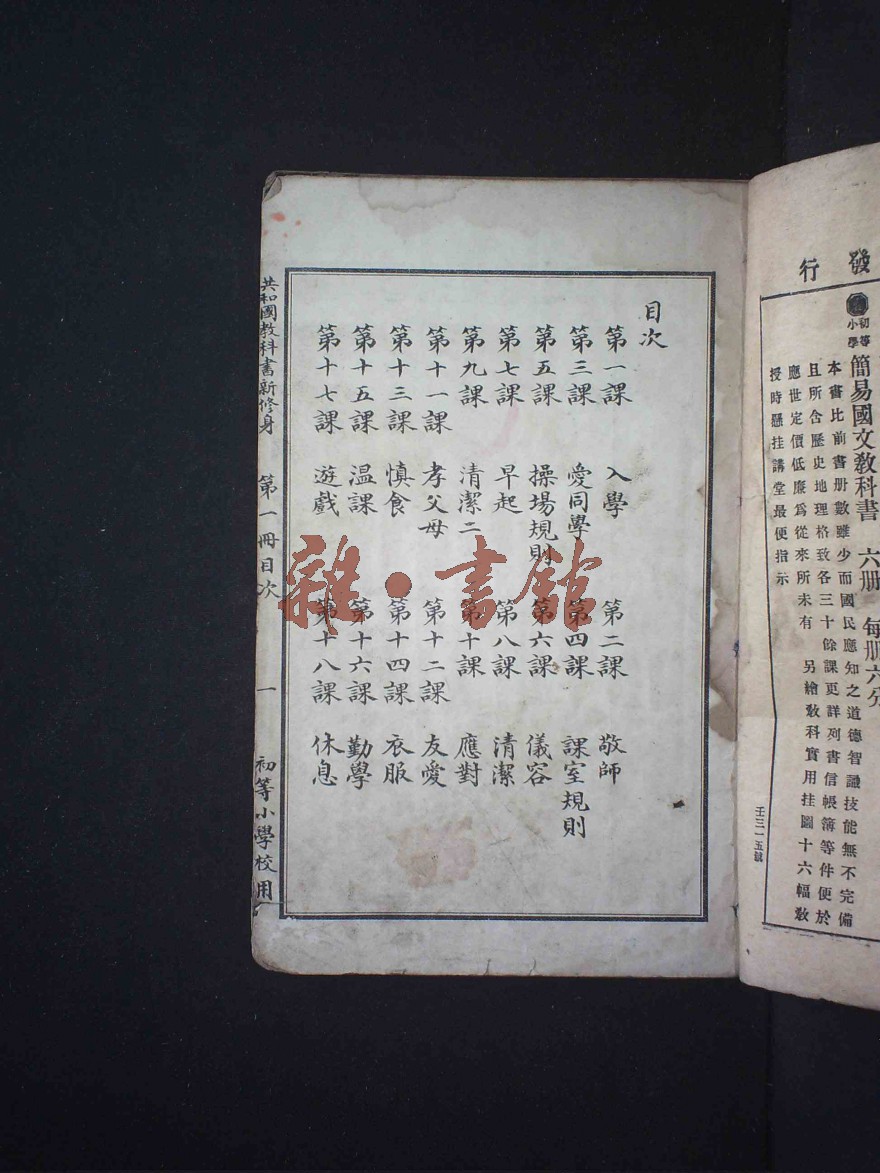 發行
初等
小學
簡易國文教科書 六册 每册六分
本書比前書册數雖少而國民應知之道德智識技能無不完備
且所含歷史地理格致各三十餘課更詳列書信帳簿等件便於
應世定價低廉為從來所未有 另繪教科實用挂圖十六幅教
授時懸挂講堂最便指示
壬三一五號
目次
第一課 入學 第二課 敬師
第三課 愛同學 第四課 課室規則
第五課 操場規則 第六課 儀容
第七課 早起 第八課 清潔
第九課 清潔二 第十課 應對
第十一課 孝父母 第十二課 友愛
第十三課 慎食 第十四課 衣服
第十五課 温課 第十六課 勤學
第十七課 遊戲 第十八課 休息
共和國教科書新修身 第一冊目次 一 初等小學校用
雜·書館